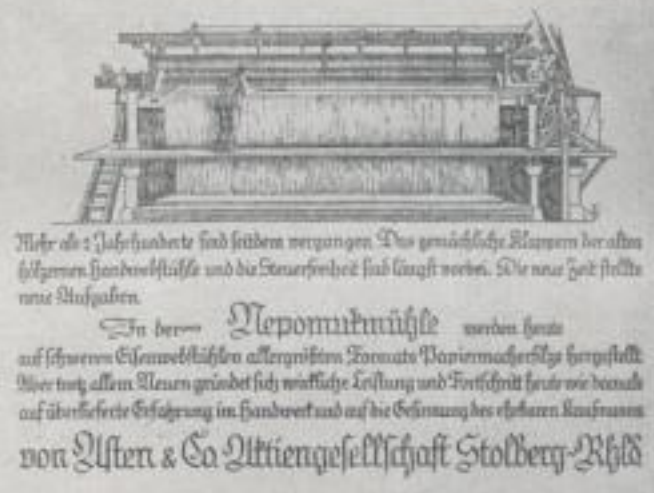 Mehr als 2 Jahrhunderte sind seitdem vergangen. Das gemächliche Klappern der alten
hölzernen Handwebstühle und die Steuerfreiheit sind längst vorbei. Die neue Zeit stellte
neue Aufgaben.
In der Nepomukmühle werden heute
auf schweren Eisenwebstühlen allergrößten Formats Papiermacherfilze hergestellt
Aber trotz allem Neuen gründet sich wirkliche Leistung und Fortschritt heute wie damals
auf überlieferte Erfahrung im Handwerk und auf die Gesinnung des ehrbaren Kaufmanns
von Asten & Co Aktiengesellschaft Stolberg-Rhld